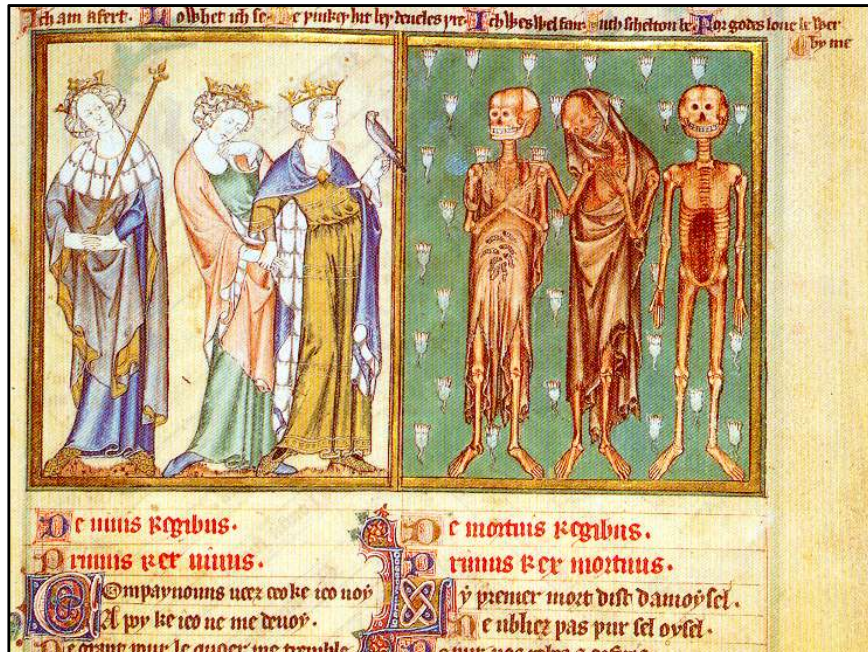 Ich am afert. Lo whet ich se. Me þinkeþ hit beþ deueles þre. Ich wes wel fair. Such scheltou be. For godes loue be wer
by me
De uiuis regibus.
Primus rex uiuus.
Compaynouns ueez ceo ke ieo uoy
A poy ke ieo ne me deuoy.
De grant pour le quoer me tremble
De mortuis regibus.
Primus rex mortuus.
Ly premer mort dist damoysel.
Ne ubliez pas pur sel oysel.